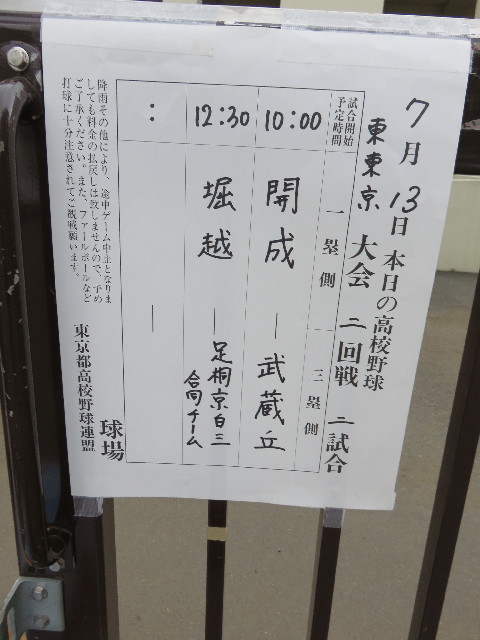 7月13日 本日の高校野球
東東京 大会 二回戦 二試合
試合開始予定時間
一塁側
三塁側
10:00
開成 ― 武蔵丘
12:30
堀越 ― 足桐京白三
合同チーム
: ―
降雨その他により、途中ゲーム中止となりま
しても料金の払戻しは致しませんので、予め
ご了承ください。また、ファールボールなど
打球に十分注意されてご観戦願います。
東京都高校野球連盟
球場